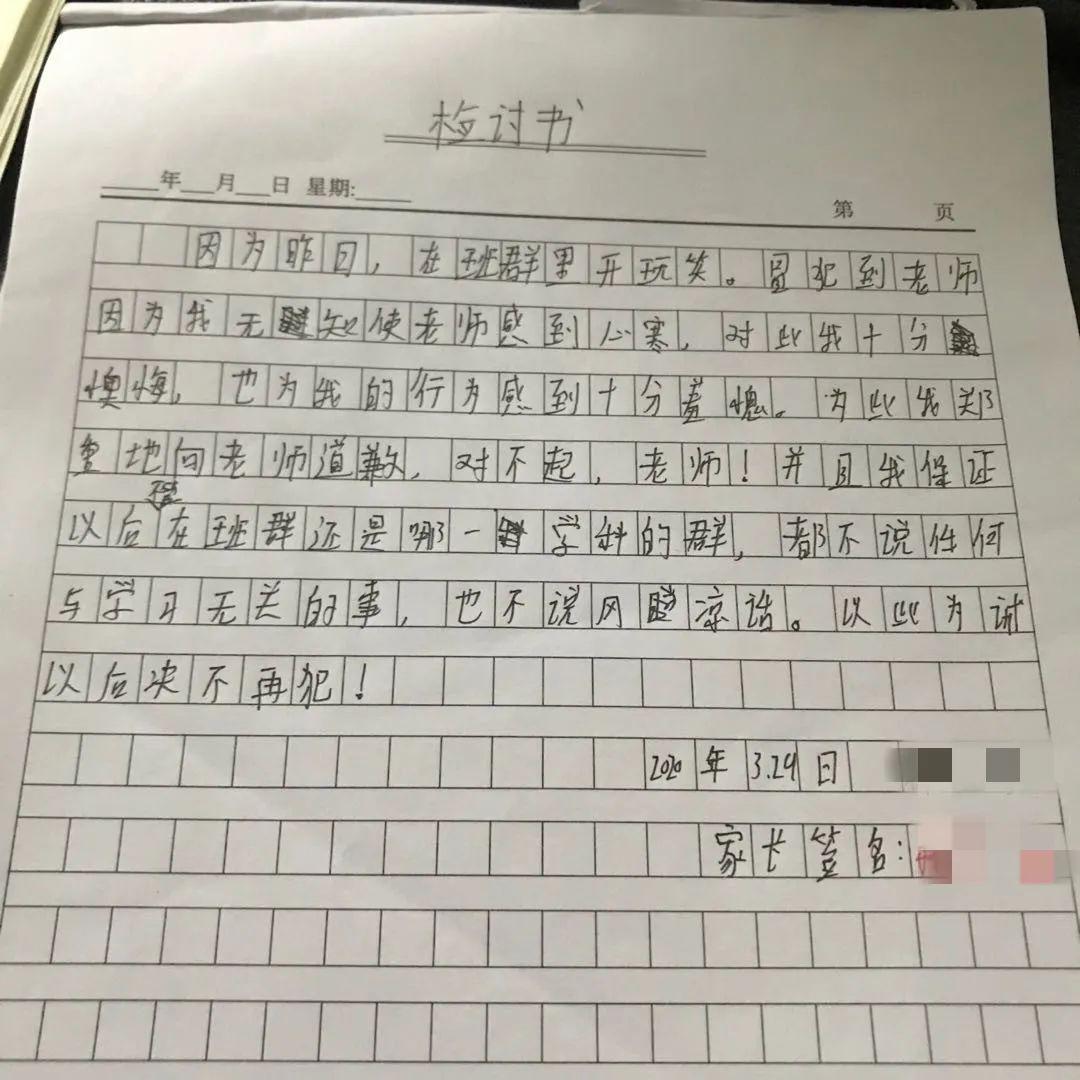 检讨书
年 月 日 星期:
第 页
因为昨日，在班群里开玩笑。冒犯到老师
因为我无知使老师感到心寒，对此我十分
懊悔，也为我的行为感到十分羞愧。为此我郑
重地向老师道歉，对不起，老师！并且我保证
以后在班群还是哪一学科的群，都不说任何
与学习无关的事，也不说风凉话。以此为诫
以后决不再犯！
2020年3.29日
家长签名：